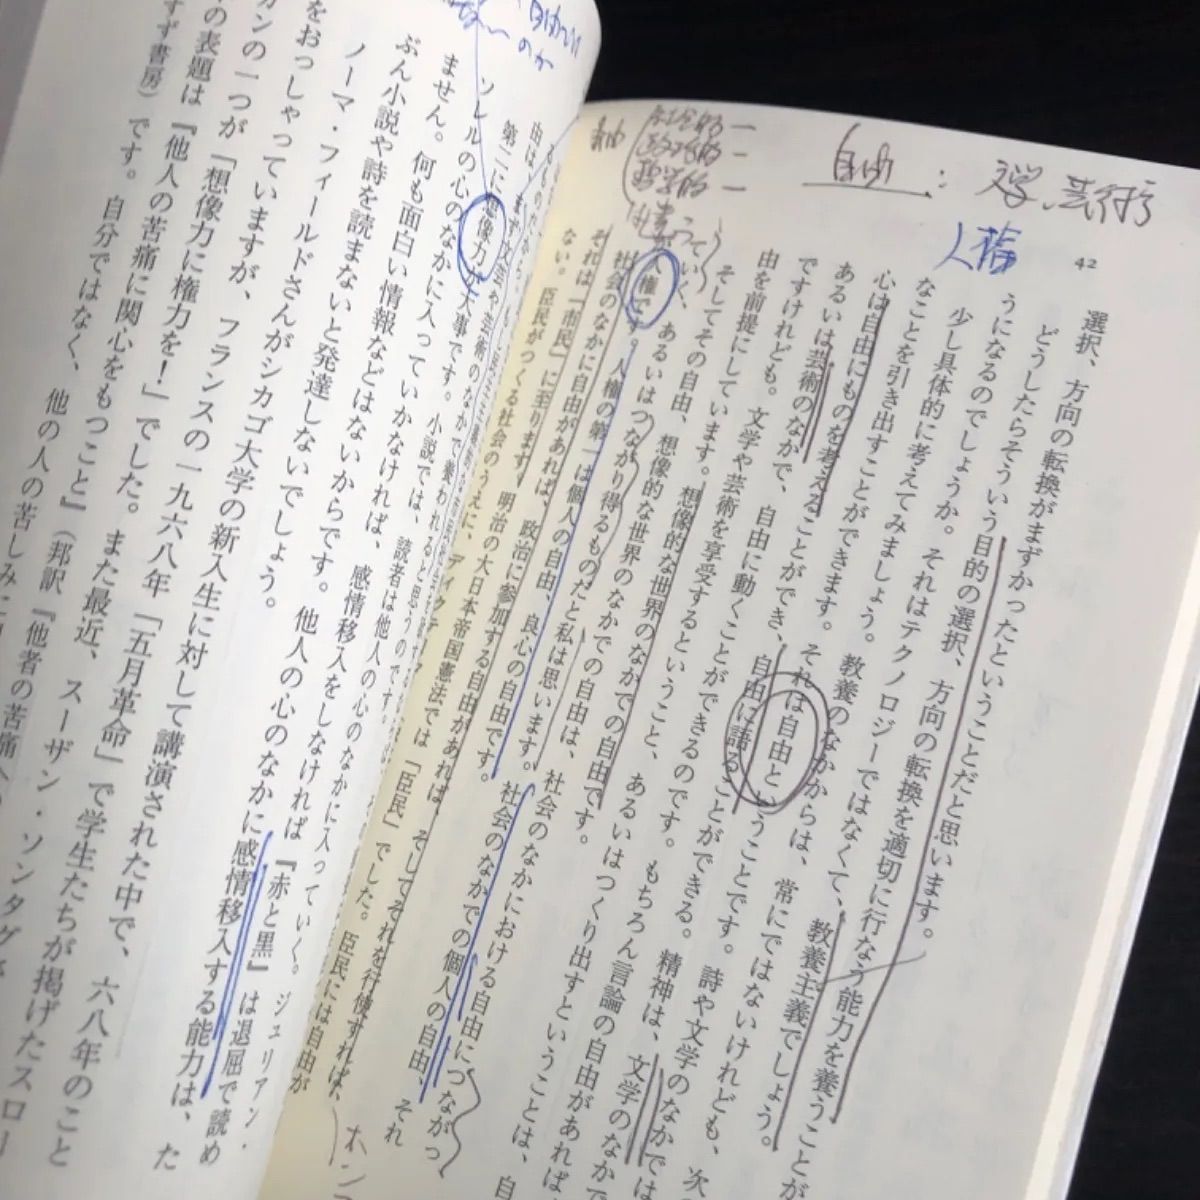 自由：文学、芸術
人権
42
選択、方向の転換がまずかったということだと思います。
どうしたらそういう目的の選択、方向の転換を適切に行なう能力を養うことが
うになるのでしょうか。それはテクノロジーではなくて、教養主義でしょう。
少し具体的に考えてみましょう。教養のなかからは、常にではないけれども、次
なことを引き出すことができます。それは自由ということです。詩や文学のなかでは
心は自由にものを考えることができ、自由に語ることができる。精神は、文学のなかで
あるいは芸術のなかで、自由に動くことができるのです。もちろん言論の自由があれば
ですけれども。文学や芸術を享受するということ、あるいはつくり出すということは、自
由を前提にしています。想像的な世界のなかでの自由です。
そしてその自由、想像的な世界のなかでの自由は、社会のなかにおける自由につながっ
ていく、あるいはつながり得るものだと私は思います。社会のなかでの個人の自由、それ
が人権です。人権の第一は個人の自由、良心の自由です。
社会のなかに自由があれば、政治に参加する自由があれば、そしてそれを行使すれば、
それは「市民」に至ります。明治の大日本帝国憲法では「臣民」でした。臣民には自由が
ない。臣民がつくる社会のうえに、
第二に想像力が大事です。小説では、読者は他人の心のなかに入っていく。ジュリアン・
ソレルの心のなかに入っていかなければ、感情移入をしなければ『赤と黒』は退屈で読め
ません。何も面白い情報などはないからです。他人の心のなかに感情移入する能力は、た
ぶん小説や詩を読まないと発達しないでしょう。
ノーマ・フィールドさんがシカゴ大学の新入生に対して講演された中で、六八年のこと
をおっしゃっていますが、フランスの一九六八年「五月革命」で学生たちが掲げたスロー
ガンの一つが「想像力に権力を！」でした。また最近、スーザン・ソンタグが
の表題は『他人の苦痛に関心をもつこと』（邦訳『他者の苦痛へ
すず書房）です。自分ではなく、他の人の苦しみに